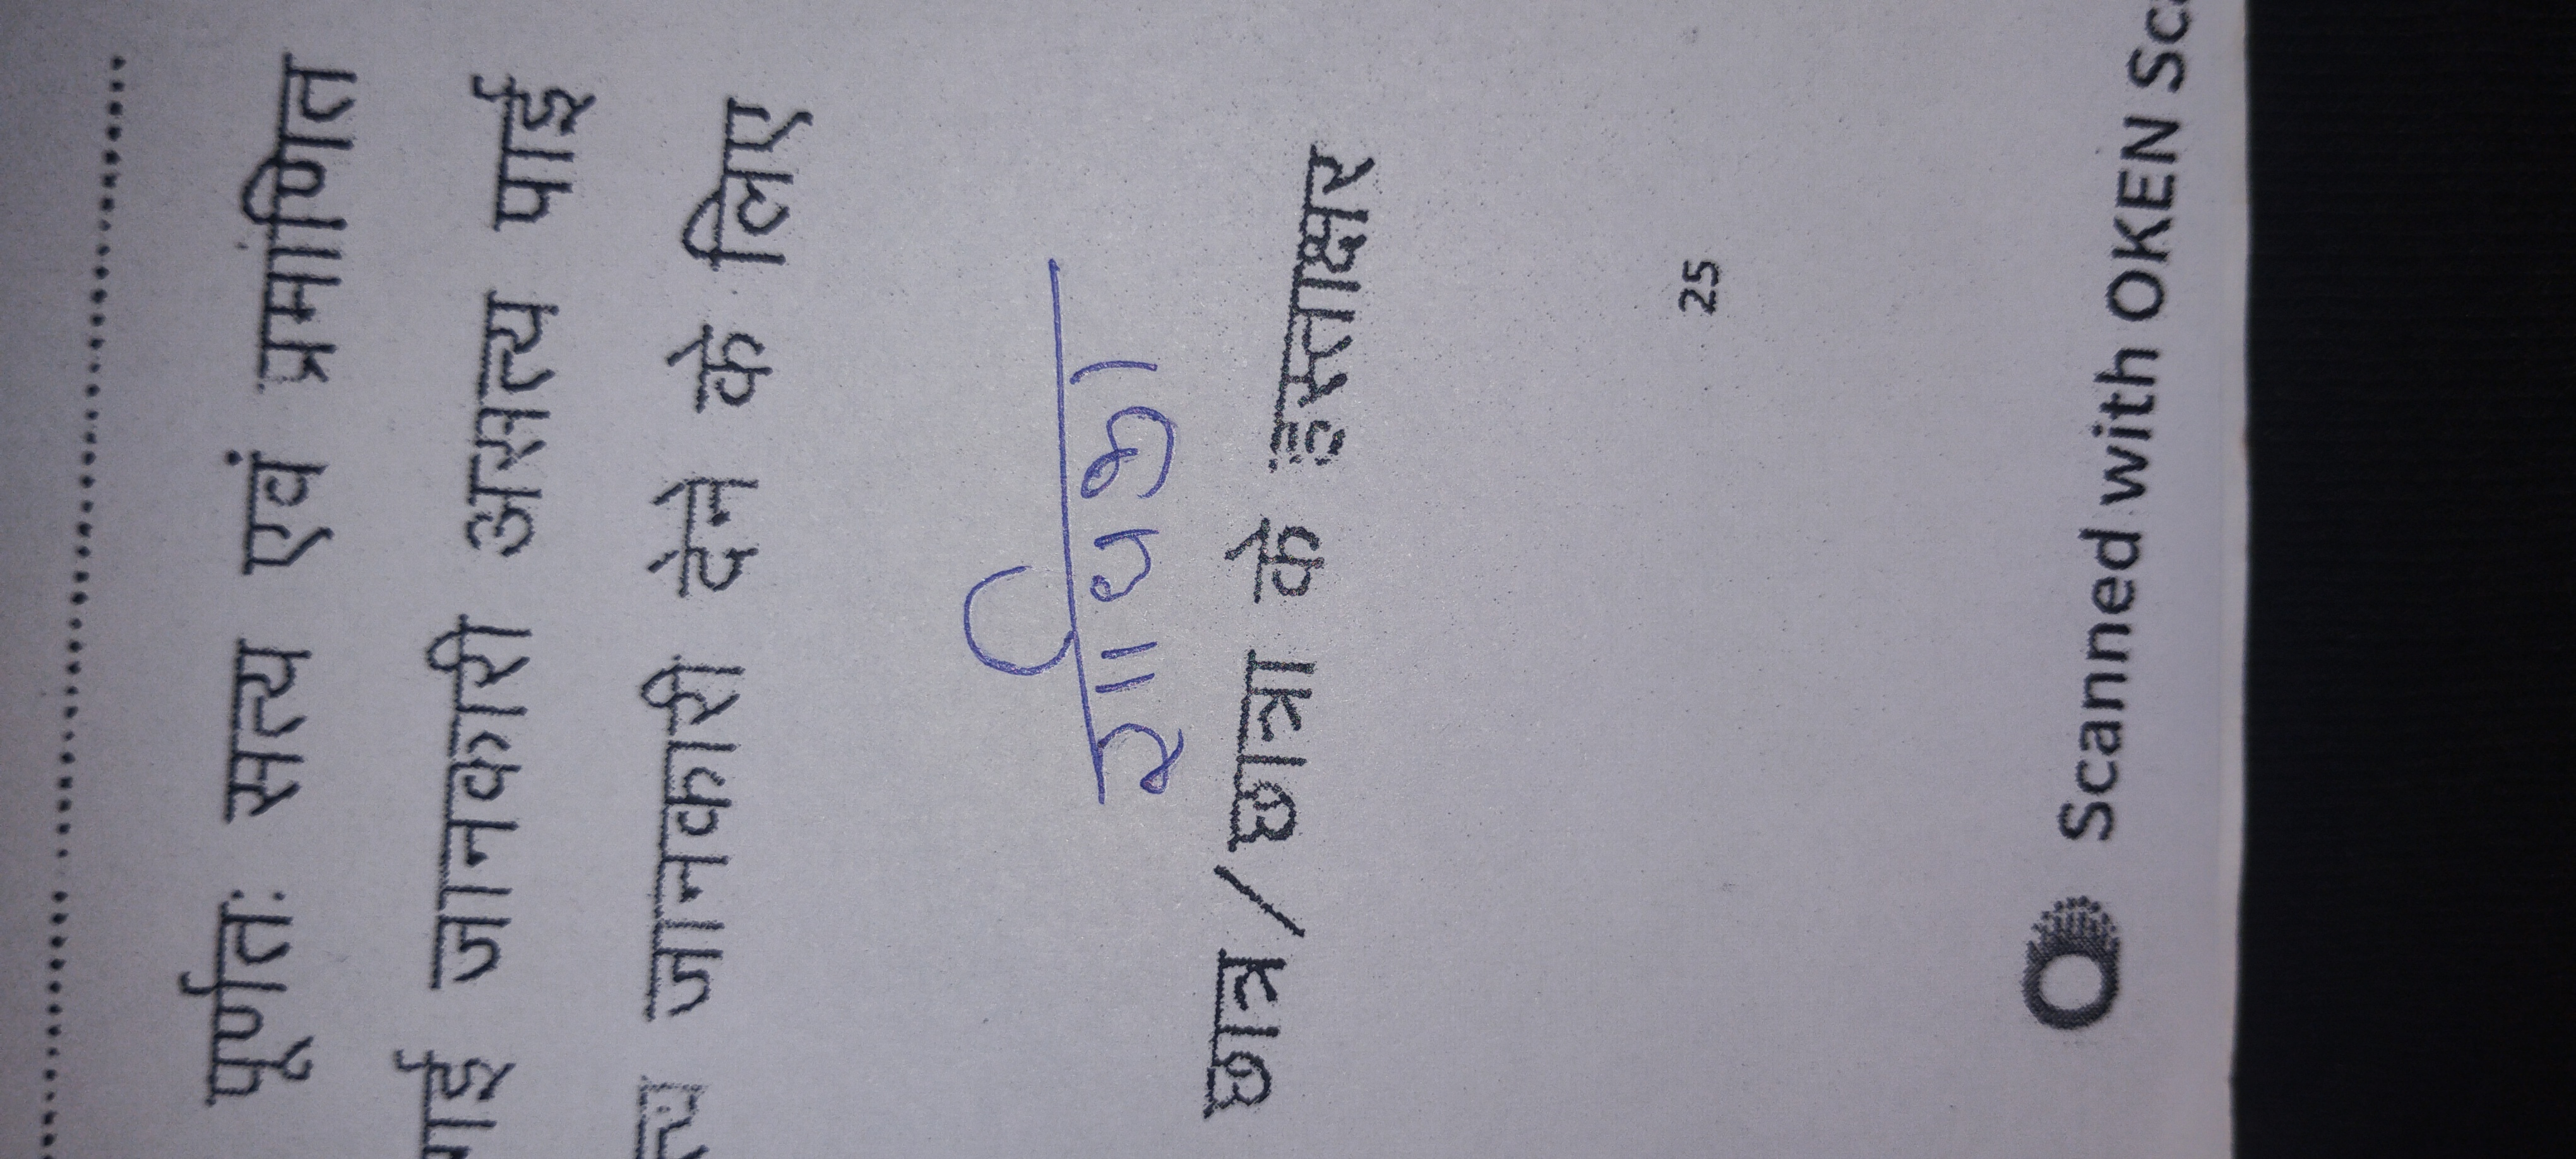 पूर्णतः सत्य एवं प्रमाणित
पाई जानकारी असत्य पाई
जानकारी देने के लिए
राधिका
छात्र/छात्रा के हस्ताक्षर
25
Scanned with OKEN